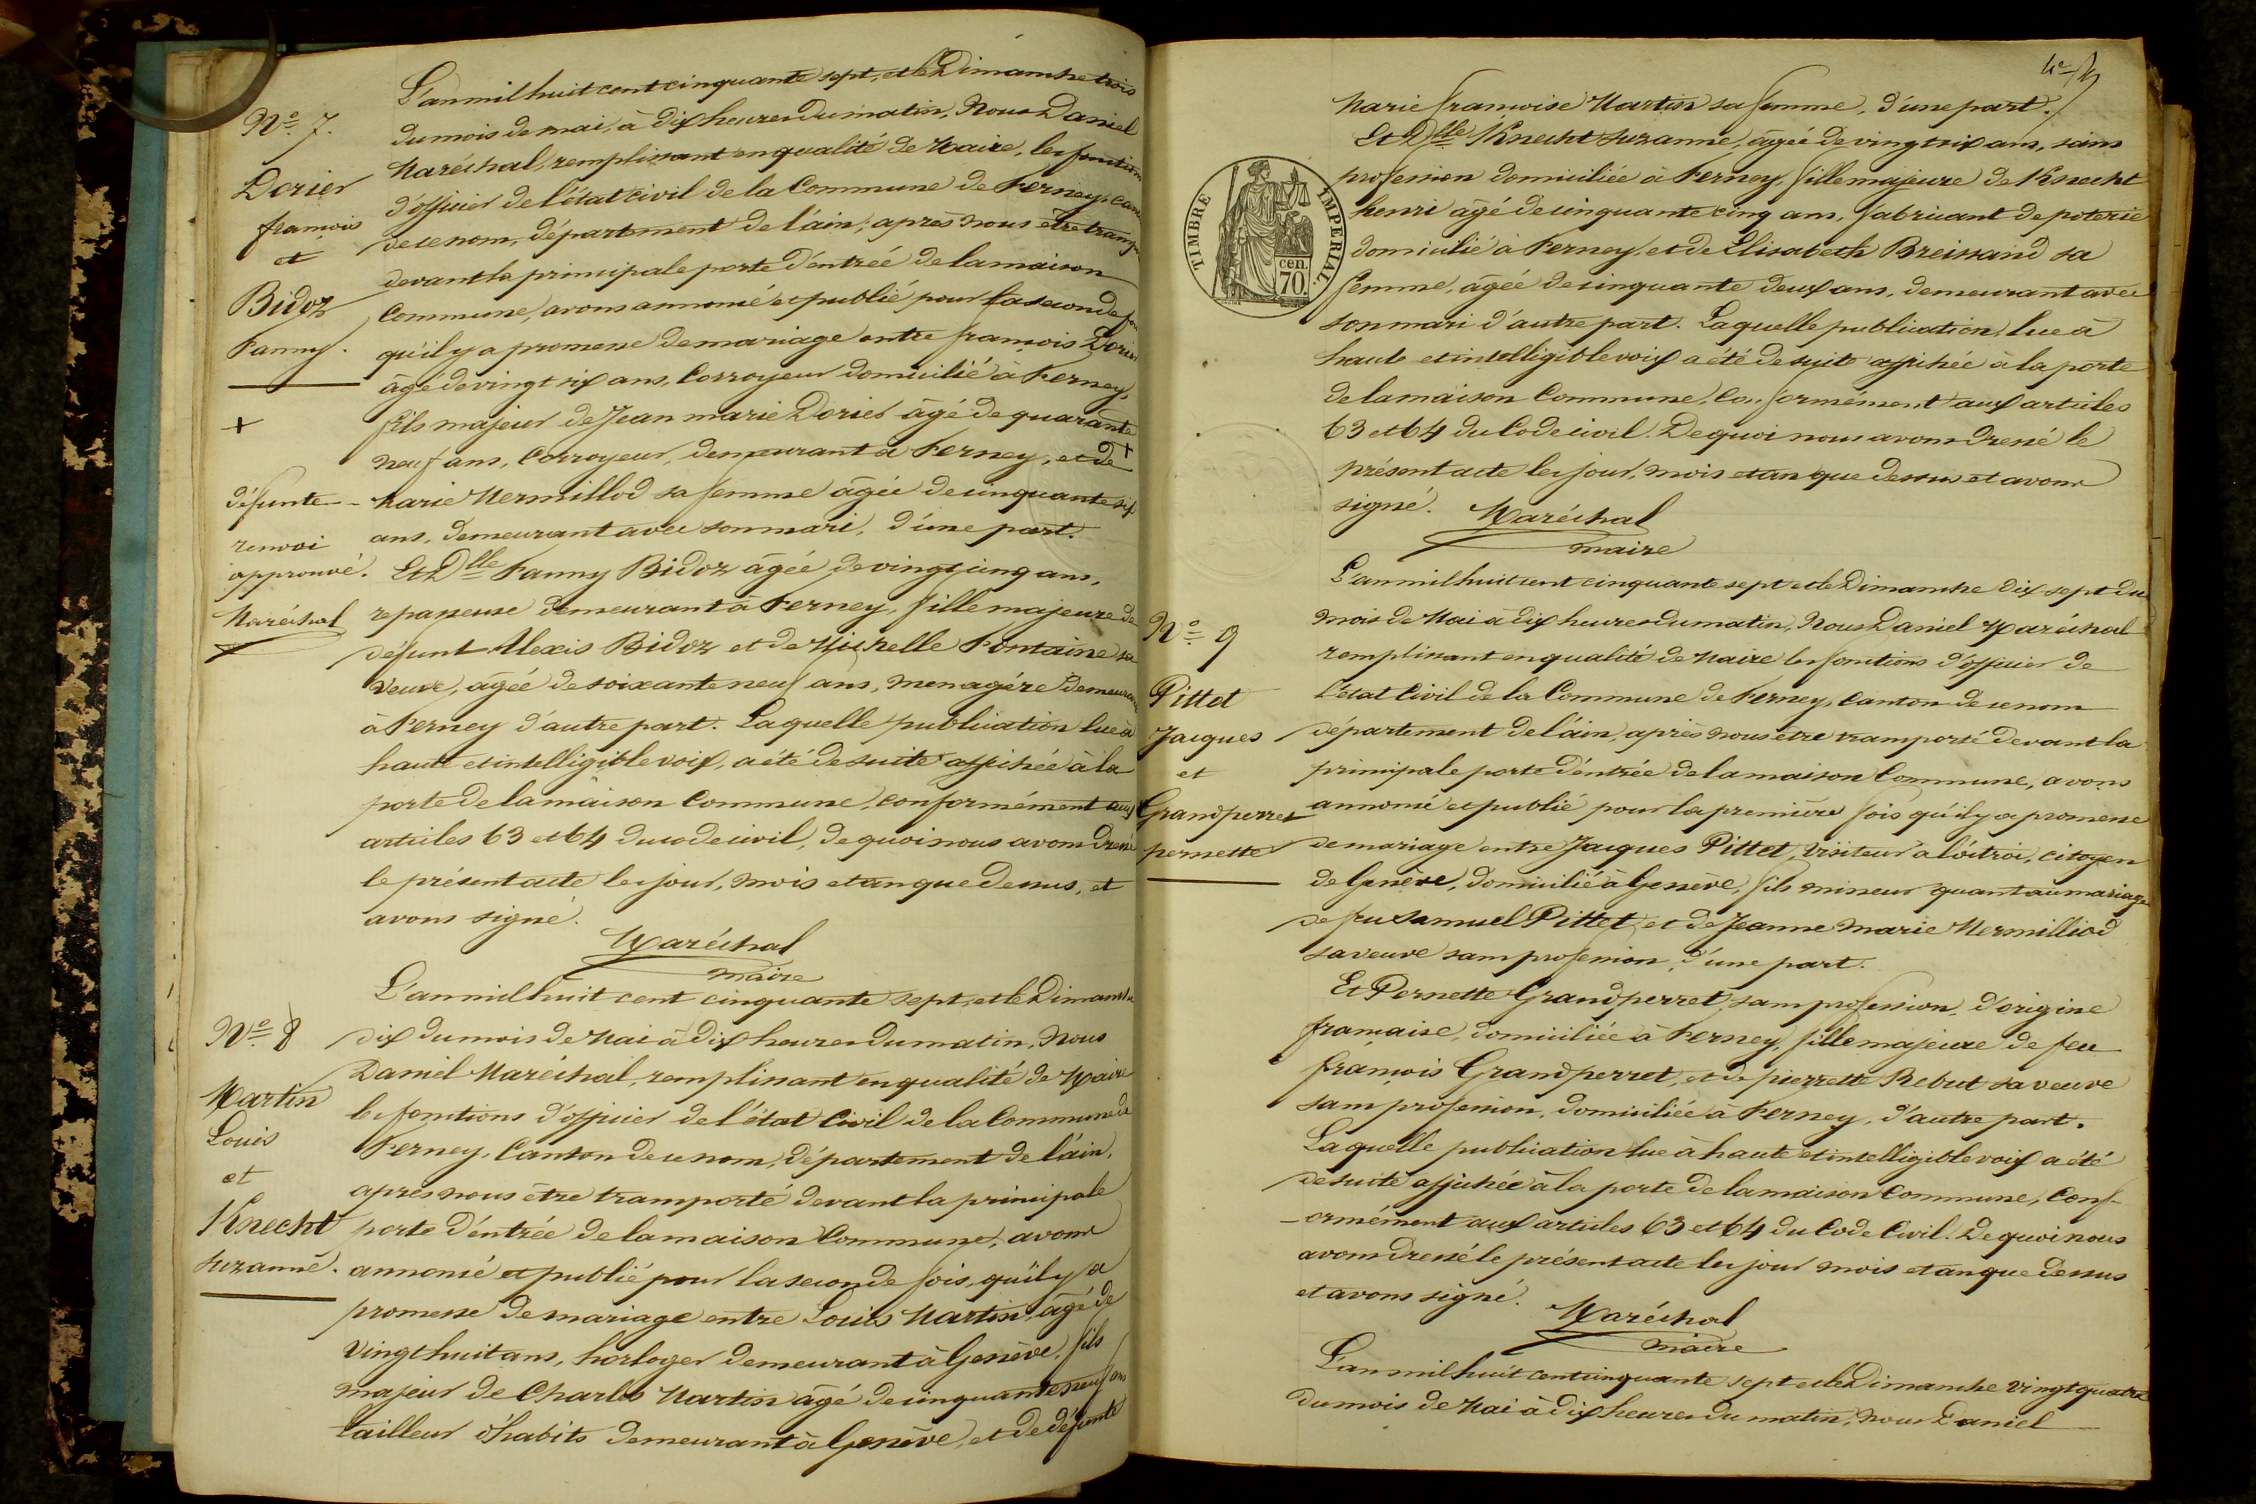 Nº 7.
Dorier
françois
et
Bidoz
Fanny.
+
défunte
renvoi
approuvé.
Maréchal
L'an mil huit cent cinquante sept, et le Dimanche trois
du mois de mai, à dix heures du matin, Nous Daniel
Maréchal, remplissant en qualité de Maire, les fonctions
d'officier de l'état civil de la Commune de Ferney, can
de ce nom, département de l'ain, après nous être transp
devant la principale porte d'entrée de la maison
Commune, avons annoncé et publié pour la seconde fois
qu'il y a promesse de mariage entre françois Dorier
âgé de vingt six ans, Corroyeur domicilié à Ferney,
fils majeur de Jean marie Dorier âgé de quarante
neuf ans, Corroyeur, demeurant à Ferney, et de +
Marie Mermillod sa femme âgée de cinquante six
ans, demeurant avec son mari, d'une part.
Et Dlle Fanny Bidoz âgée de vingt cinq ans,
repasseuse demeurant à Ferney, fille majeure de
défunt Alexis Bidoz et de Michelle Fontaine sa
veuve, âgée de soixante neuf ans, menagére demeurant
à Ferney d'autre part. Laquelle publication lue à
haute et intelligible voix, a été de suite affichée à la
porte de la maison Commune, conformément aux
articles 63 et 64 du code civil, de quoi nous avons dressé
le présent acte les jour, mois et an que dessus, et
avons signé.
Maréchal
maire
Nº 8
Martin
Louis
et
Knecht
Suzanne.
L'an mil huit cent cinquante sept, et le Dimanche
dix du mois de Mai à dix heures du matin, Nous
Daniel Maréchal, remplissant en qualité de Maire
les fonctions d'officier de l'état Civil de la Commune de
Ferney, Canton de ce nom, département de l'ain,
après nous être transporté devant la principale
porte d'entrée de la maison Commune, avons
annoncé et publié pour la seconde fois, qu'il y a
promesse de mariage entre Louis Martin, âgé de
vingt huit ans, horloger demeurant à Genève, fils
majeur de Charles Martin âgé de cinquante neuf ans
tailleur d'habits demeurant à Genève, et de défunte
4e
Marie françoise Martin sa femme, d'une part.
Et Dlle Knecht Suzanne, âgée de vingt six ans, sans
profession domiciliée à Ferney, fille majeure de Knecht
henri âgé de cinquante cinq ans, fabricant de poterie
domicilié à Ferney, et de Elisabeth Breissand sa
femme, âgée de cinquante deux ans, demeurant avec
son mari d'autre part. Laquelle publication, lue à
haute et intelligible voix a été de suite affichée à la porte
de la maison Commune, Conformément aux articles
63 et 64 du Code civil. De quoi nous avons dressé le
présent acte les jour, mois et an que dessus et avons
signé.
Maréchal
maire
TIMBRE IMPÉRIAL.
cen.
70.
Nº 9
Pittet
Jacques
et
Grandperret
pernette
L'an mil huit cent cinquante sept et le Dimanche dix sept du
mois de Mai à dix heures du matin, Nous Daniel Maréchal
remplissant en qualité de Maire les fonctions d'officier de
l'état Civil de la Commune de Ferney, Canton de ce nom
département de l'ain, après nous être transporté devant la
principale porte d'entrée de la maison Commune, avons
annoncé et publié pour la première fois qu'il y a promesse
de mariage entre Jacques Pittet, visiteur à l'octroi, citoyen
de Genève, domicilié à Genève, fils mineur quant au mariage
de feu Samuel Pittet, et de Jeanne Marie Mermilliod
sa veuve sans profession, d'une part.
Et Pernette Grandperret, sans profession, d'origine
française, domiciliée à Ferney, fille majeure de feu
françois Grandperret, et de pierrette Rebut sa veuve
sans profession, domiciliée à Ferney, d'autre part.
Laquelle publication lue à haute et intelligible voix a été
de suite affichée à la porte de la maison Commune, Conf-
-ormément aux articles 63 et 64 du Code Civil. De quoi nous
avons dressé le présent acte les jour mois et an que dessus
et avons signé.
Maréchal
maire
L'an mil huit cent cinquante sept et le Dimanche vingt quatre
du mois de Mai à dix heures du matin, nous Daniel